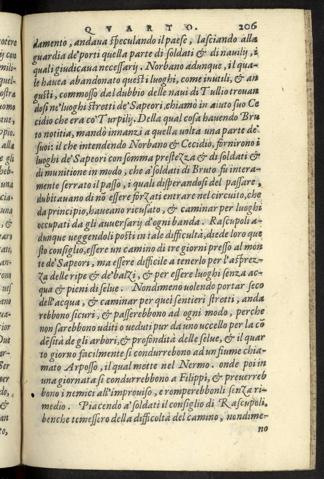 QVARTO. 206
damento, andaua speculando il paese, lasciando alla
guardia de' porti quella parte di soldati & di nauilij, i
quali giudicaua necessarij. Norbano adunque, il qua-
le haueua abandonato questi luoghi, come inutili, & an
gusti, commosso dal dubbio delle naui di Tullio trouan
dosi ne' luoghi stretti de' Sapeori, chiamò in aiuto suo Ce
cidio che era cō Turpilij. Della qual cosa hauendo Bru
to notitia, mandò innanzi a quella uolta una parte de'
suoi: il che intendendo Norbano & Cecidio, fornirono i
luoghi de' Sapeori con somma prestezza & di soldati &
di munitione in modo, che a' soldati di Bruto fù intera-
mente serrato il passo, i quali disperandosi del passare,
dubitauano di nō essere forzati entrare nel circuito, che
da principio, haueano ricusato, & caminar per luoghi
occupati da gli auuersarij d'ogni banda. Rascupoli a-
dunque ueggendoli posti in tale difficultà, diede loro que
sto consiglio, essere un camino di tre giorni presso al mon
te de' Sapeori, ma essere difficile a tenerlo per l'asprez-
za delle ripe & de' balzi, & per essere luoghi senza ac-
qua & pieni di selue. Nondimeno uolendo portar seco
dell'acqua, & caminar per quei sentieri stretti, anda
rebbono sicuri, & passerebbono ad ogni modo, perche
non sarebbono uditi o ueduti pur da uno uccello per la cō
dēsità de gli arbori, & profondità delle selue, & il quar
to giorno facilmente si condurrebono ad un fiume chia-
mato Arposso, il qual mette nel Nermo. onde poi in
una giornata si condurrebbono a Filippi, & preuerreb
bono i nemici all'improuiso, e romperebbonli senza ri-
medio. Piacendo a' soldati il consiglio di Rascupoli,
benche temessero della difficoltà del camino, nondime-
no